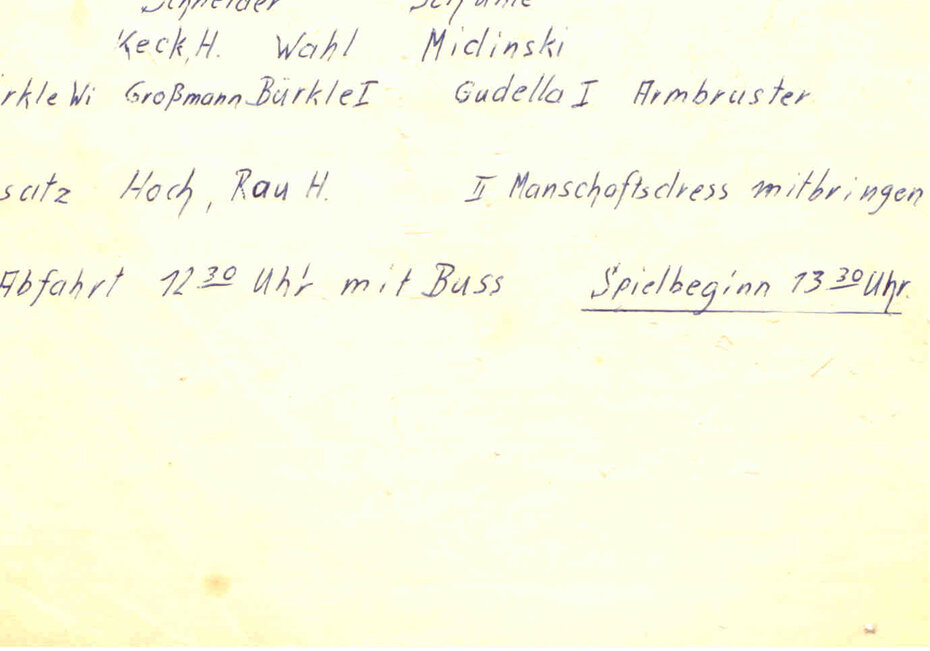 Schneider
Keck, H. Wahl Midinski
rkle Wi Großmann Bürkle I Gudella I Armbruster
satz Hoch, Rau H. II Manschaftsdress mitbringen
Abfahrt 12 30 Uhr mit Buss Spielbeginn 13 30 Uhr.